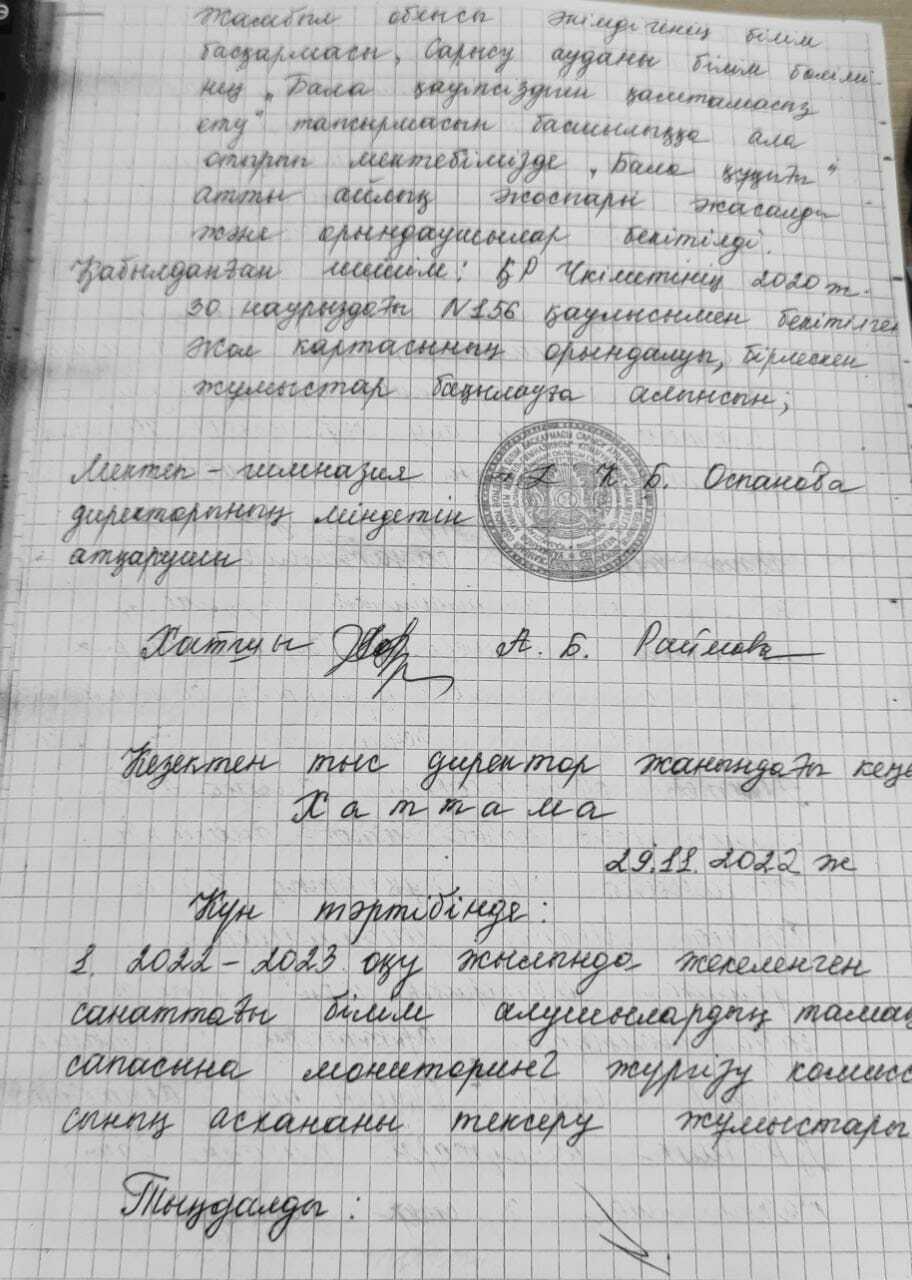 Жамбыл облысы әкімдігенің білім
басқармасы, Сарысу ауданы білім бөлімі-
нің „Бала қауіпсіздігін қамтамасыз
ету" тапсырмасын басшылыққа ала
отырып мектебімізде „Бала құқығы"
атты айлық жоспары жасалды
және орындаушылар бекітілді.
Қабылданған шешім: ҚР Үкіметінің 2020 ж.
30 наурыздағы N156 қаулысымен бекітілген
Жол картасының орындалуы, бірлескен
жұмыстар бақылауға алынсын;
Мектеп – гимназия Б. Оспанова
директорының міндетін
атқарушы
Хатшы А. Б. Раимова
Кезектен тыс директор жанындағы кеңе
Хаттама
29.11.2022 ж
Күн тәртібінде:
1. 2022 – 2023 оқу жылында жекеленген
санаттағы білім алушылардың тамақ
сапасына мониторинг жүргізу комисс
сының асхананы тексеру жұмыстары
Тыңдалды: